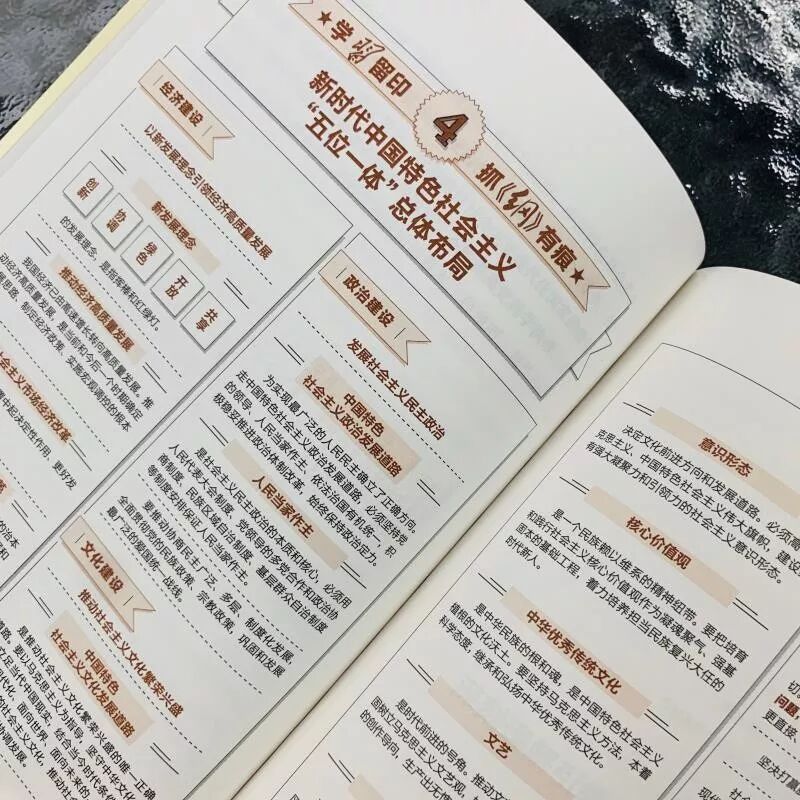 学习留印
4
抓《纲》有痕
新时代中国特色社会主义
“五位一体”总体布局
经济建设
以新发展理念引领经济高质量发展
新发展理念
创新
协调
绿色
开放
共享
的发展理念，是指挥棒和红绿灯。
推动经济高质量发展
我国经济已由高速增长转向高质量发展。推
动经济高质量发展，是当前和今后一个时期确定
展思路、制定经济政策、实施宏观调控的根本
社会主义市场经济改革
置中起决定性作用，更好发
政治建设
发展社会主义民主政治
中国特色
社会主义政治发展道路
为实现最广泛的人民民主确立了正确方向。
走中国特色社会主义政治发展道路，必须坚持党
的领导、人民当家作主、依法治国有机统一，积
极稳妥推进政治体制改革，始终保持政治定力。
人民当家作主
是社会主义民主政治的本质和核心，必须用
人民代表大会制度、党领导的多党合作和政治协
商制度、民族区域自治制度、基层群众自治制度
等制度安排保证人民当家作主。
要推动协商民主广泛、多层、制度化发展，
全面贯彻党的民族政策、宗教政策，巩固和发展
最广泛的爱国统一战线。
文化建设
推动社会主义文化繁荣兴盛
中国特色
社会主义文化发展道路
是推动社会主义文化繁荣兴盛的唯一正确
道路。要以马克思主义为指导，坚守中华文化
立足当代中国现实，结合当今时代条件
代化、面向世界、面向未来的，
意识形态
决定文化前进方向和发展道路。必须高
克思主义、中国特色社会主义伟大旗帜，建设
有强大凝聚力和引领力的社会主义意识形态。
核心价值观
是一个民族赖以维系的精神纽带。要把培育
和践行社会主义核心价值观作为凝魂聚气、强基
固本的基础工程，着力培养担当民族复兴大任的
时代新人。
中华优秀传统文化
是中华民族的根和魂，是中国特色社会主义
植根的文化沃土。要坚持马克思主义方法，本着
科学态度，继承和弘扬中华优秀传统文化。
文艺
是时代前进的号角。推动文
固树立马克思主义文艺观，
的创作导向，生产出无愧
切
问题，
更直接、
坚决打赢